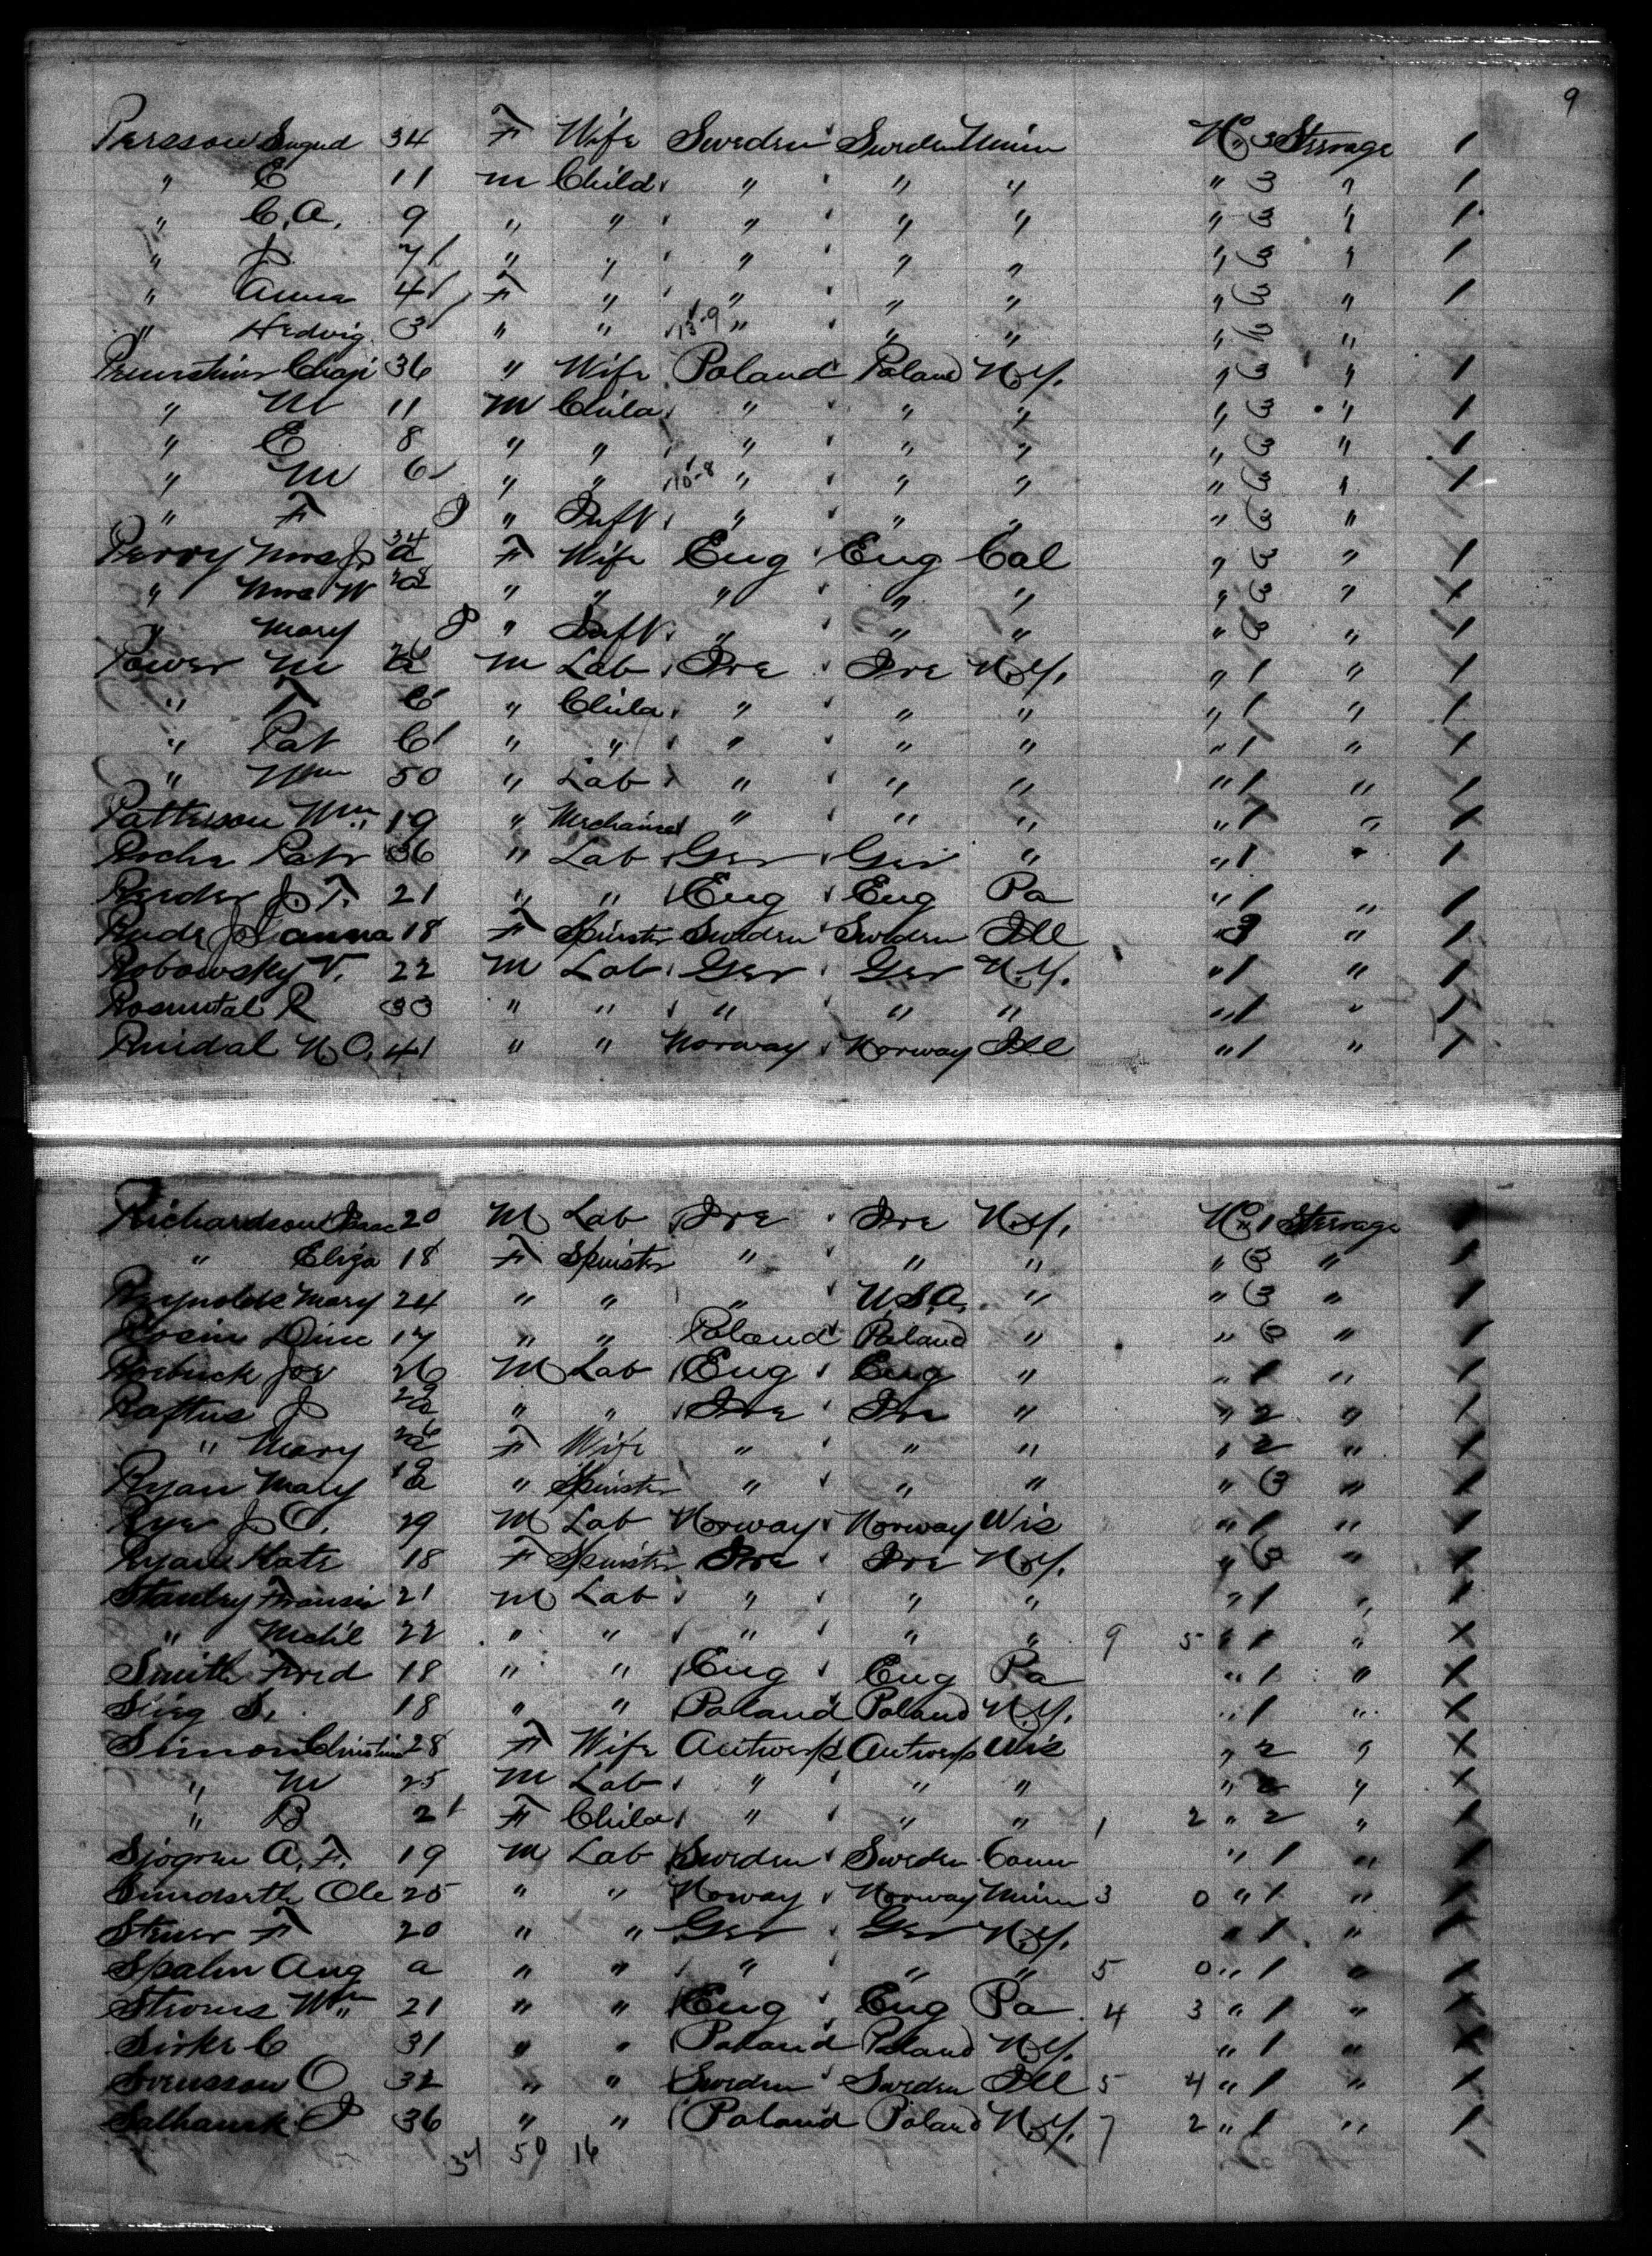 9
Persson Sugnd 34 F Wife Sweden Sweden Minn No 3 Steerage 1
" E 11 M Child " " " " 3 " 1
" C.A. 9 " " " " " " 3 " 1
" J 7 " " " " " " 3 " 1
" Anna 4 F " " " " " 3 " 1
" Hedvig 3 " " " " " " 3 "
Chaji 36 " Wife Poland Poland N.Y. " 3 " 1
" M 11 M Child " " " " 3 " 1
" E 8 " " " " " " 3 " 1
" M 6 " " 10-8 " " " " 3 " 1
" F " Inft " " " " 3 "
Perry Mrs J 34 a F Wife Eng Eng Cal " 3 " 1
" Mrs W 28 a " " " " " " 3 " 1
" Mary " Inft " " " " 3 " 1
Power M M Lab Ire Ire N.Y. " 1 " 1
" T 6 " Child " " " " 1 " 1
" Pat 6 " " " " " " 1 " 1
" Wm 50 " Lab " " " " 1 " 1
Patterson Wm 19 " Mechanic " " " " 1 " 1
Roche Patr 36 " Lab Ger Ger " " 1 " 1
Reeder J. T. 21 " " Eng Eng Pa " 1 " 1
Rude Johanna 18 F Spinster Sweden Sweden Ill " 3 " 1
Robowsky V. 22 M Lab Ger Ger N.Y. " 1 " 1
Rosental R 33 " " " " " " 1 " 1
Ruidal N O. 41 " " Norway Norway Ill " 1 " 1
Richardson Isaac 20 M Lab Ire Ire N.Y. No 1 Steerage 1
" Eliza 18 F Spinster " " " " 3 " 1
Reynolds Mary 24 " " " U.S.A. " " 3 " 1
Rosin Dine 17 " " Poland Poland " " 3 " 1
Roebuck Jos 26 M Lab Eng Eng " " 1 " 1
Raftus J 29 a " " Ire Ire " " 2 " 1
" Mary 26 a F Wife " " " " 2 " 1
Ryan Mary 19 a " Spinster " " " " 3 " 1
Rye J O. 29 M Lab Norway Norway Wis " 1 " 1
Ryan Kate 18 F Spinster Ire Ire N.Y. " 3 " 1
Stanley Francis 21 M Lab " " " " 1 " 1
" Mchl 22 " " " " " 9 5 " 1 " 1
Smith Fred 18 " " Eng Eng Pa " 1 " 1
Sieg S. 18 " " Poland Poland N.Y. " 1 " 1
Simon Christine 28 F Wife Antwerp Antwerp Wis " 2 " 1
" M 25 M Lab " " " " 2 " 1
" B 2 F Child " " " 1 2 " 2 " 1
Sjogren A. F. 19 M Lab Sweden Sweden Conn " 1 " 1
Sundseth Ole 25 " " Norway Norway Minn 3 0 " 1 " 1
Steuer F 20 " " Ger Ger N.Y. " 1 " 1
Spalin Aug a " " " " " 5 0 " 1 " 1
Stroms Wm 21 " " Eng Eng Pa 4 3 " 1 " 1
Sirke C 31 " " Poland Poland N.Y. " 1 " 1
Svensson O 32 " " Sweden Sweden Ill 5 4 " 1 " 1
Salhanek P 36 " " Poland Poland N.Y. 7 2 " 1 " 1
34 50 16